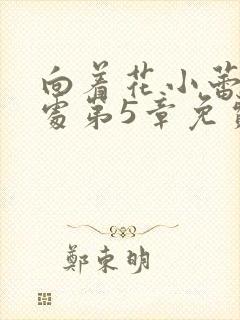 向着花小蕾
处第5章免费
鄭東明